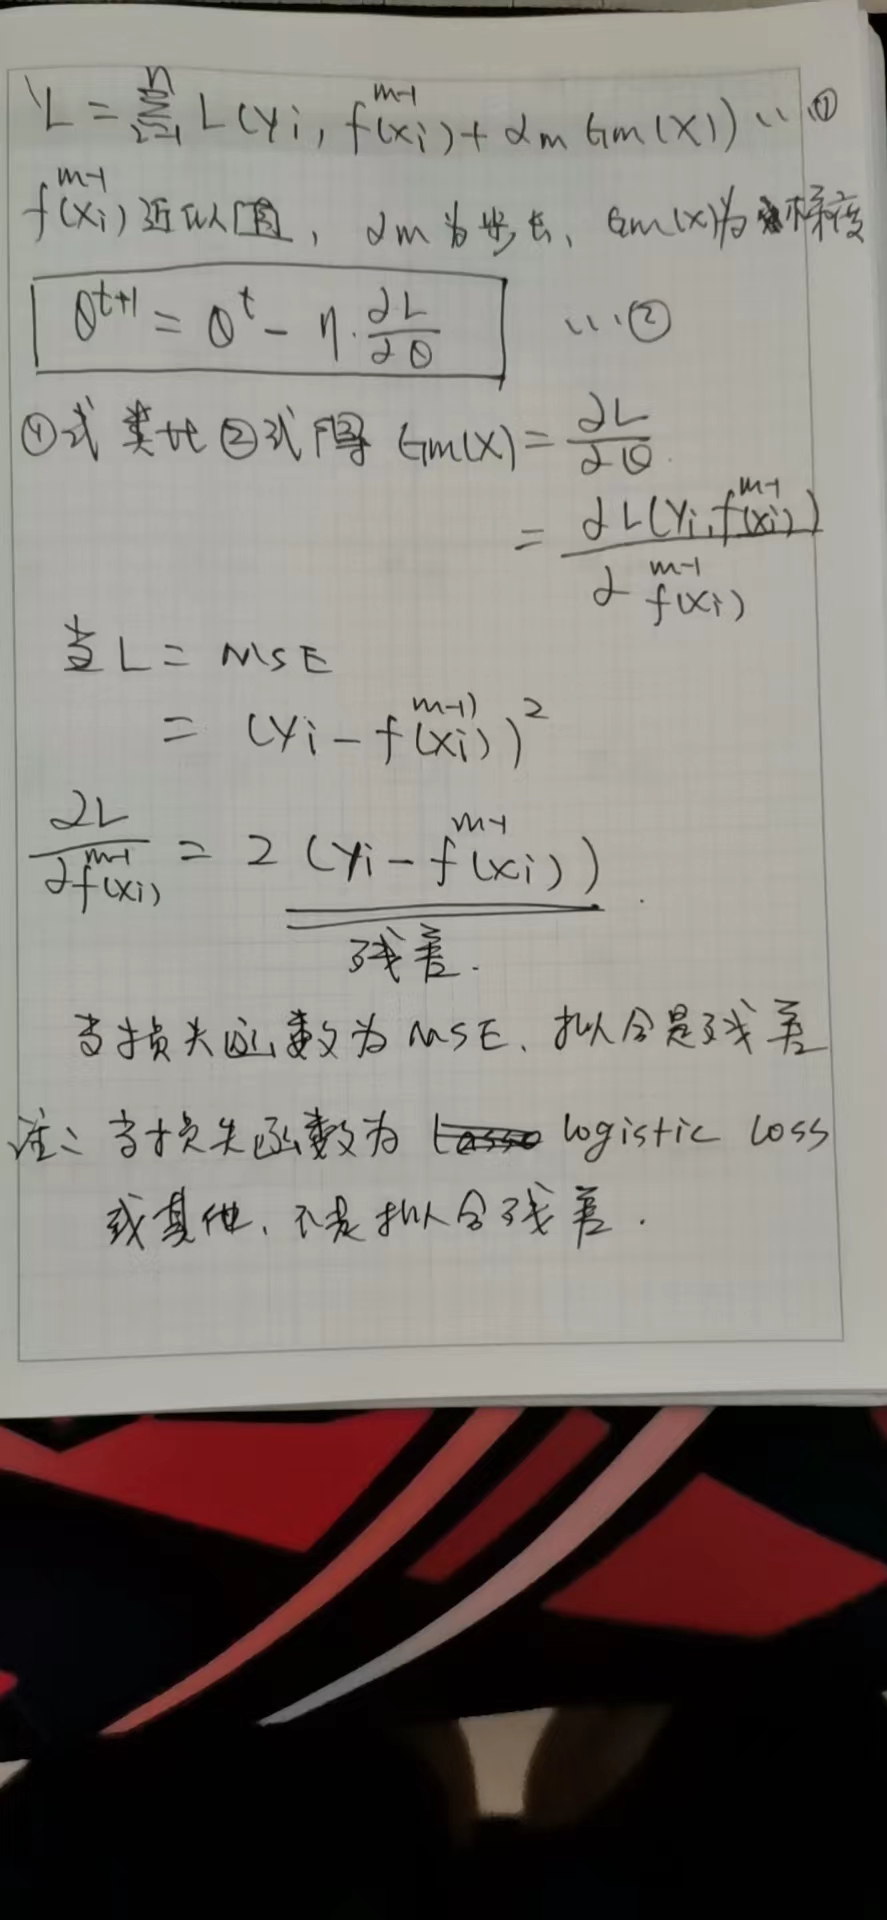 L = \sum_{i=1}^{n} L(yi, f^{m-1}(xi) + αm Gm(x)) … ①
f^{m-1}(xi) 近似值, αm 为步长, Gm(x)为 梯度
θ^{t+1} = θ^t - η · ∂L/∂θ … ②
①式 类比 ②式 得 Gm(x) = ∂L/∂θ
= ∂L(yi, f^{m-1}(xi)) / ∂f^{m-1}(xi)
当 L = MSE
= (yi - f^{m-1}(xi))^2
∂L/∂f^{m-1}(xi) = 2 (yi - f^{m-1}(xi))
残差.
当损失函数为 MSE, 拟合是残差
注: 当损失函数为 logistic loss
或其他, 不是拟合残差.